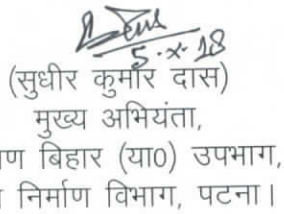 5.x.18
(सुधीर कुमार दास)
मुख्य अभियंता,
ण बिहार (या०) उपभाग,
निर्माण विभाग, पटना।